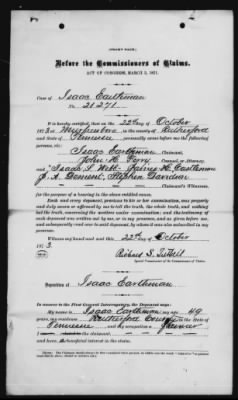 Before the Commissioners of Claims.
ACT OF CONGRESS, MARCH 3, 1871.
Case of Isaac Earthman
No. 21.271.
It is hereby certified, that on the 22nd day of October
1873, at Murfreesboro in the county of Rutherford
State of Tennessee personally came before me the following
persons, viz:
Isaac Earthman Claimant,
John H. Counsel, or Attorney,
and Isaac S. Webb James H. Earthman
Stephen Davidson
Claimant's Witnesses.
For the purpose of a hearing in the above entitled cause.
Each and every deponent, previous to his or her examination, was properly
and duly sworn or affirmed by me to tell the truth, the whole truth, and nothing
but the truth, concerning the matters under examination; and the testimony of
each deponent was written out by me, or in my presence, and as given before me,
and subsequently read over to said deponent, by whom it was also subscribed in
my presence.
Witness my hand and seal this 22nd day of October
1873.
Richard S.
Special Commissioner of the Commissioners of Claims.
Deposition of Isaac Earthman
In answer to the First General Interrogatory, the Deponent says:
My name is Isaac Earthman my age 49
years, my residence Rutherford County in the State of
Tennessee and my occupation a Farmer
have a beneficial interest in the claim.